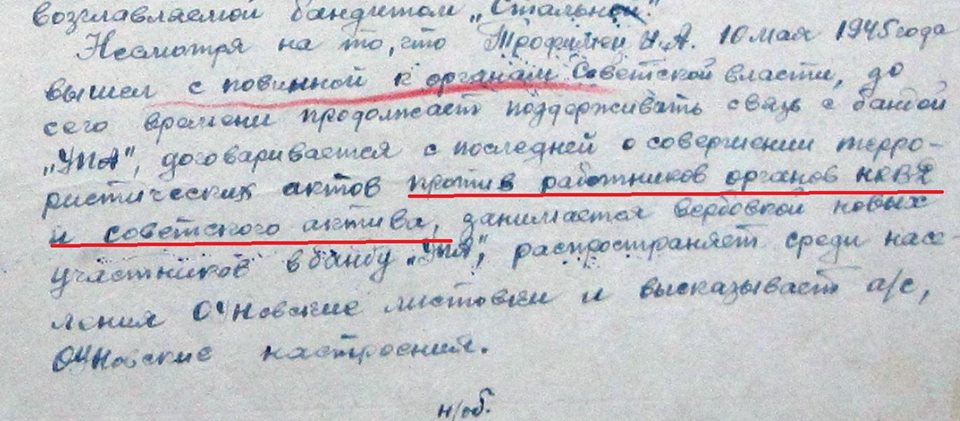 возглавляемой бандитом „Стальной".
Несмотря на то, что Трофимчук И.А. 10 мая 1945 года
вышел с повинной к органам Советской власти, до
сего времени продолжает поддерживать связь с бандой
„УПА", договаривается с последней о совершении терро-
ристических актов против работников органов НКВД
и советского актива, занимается вербовкой новых
участников в банду „УПА", распространяет среди насе-
ления ОУНовские листовки и высказывает а/с,
ОУНовские настроения.
н/об.